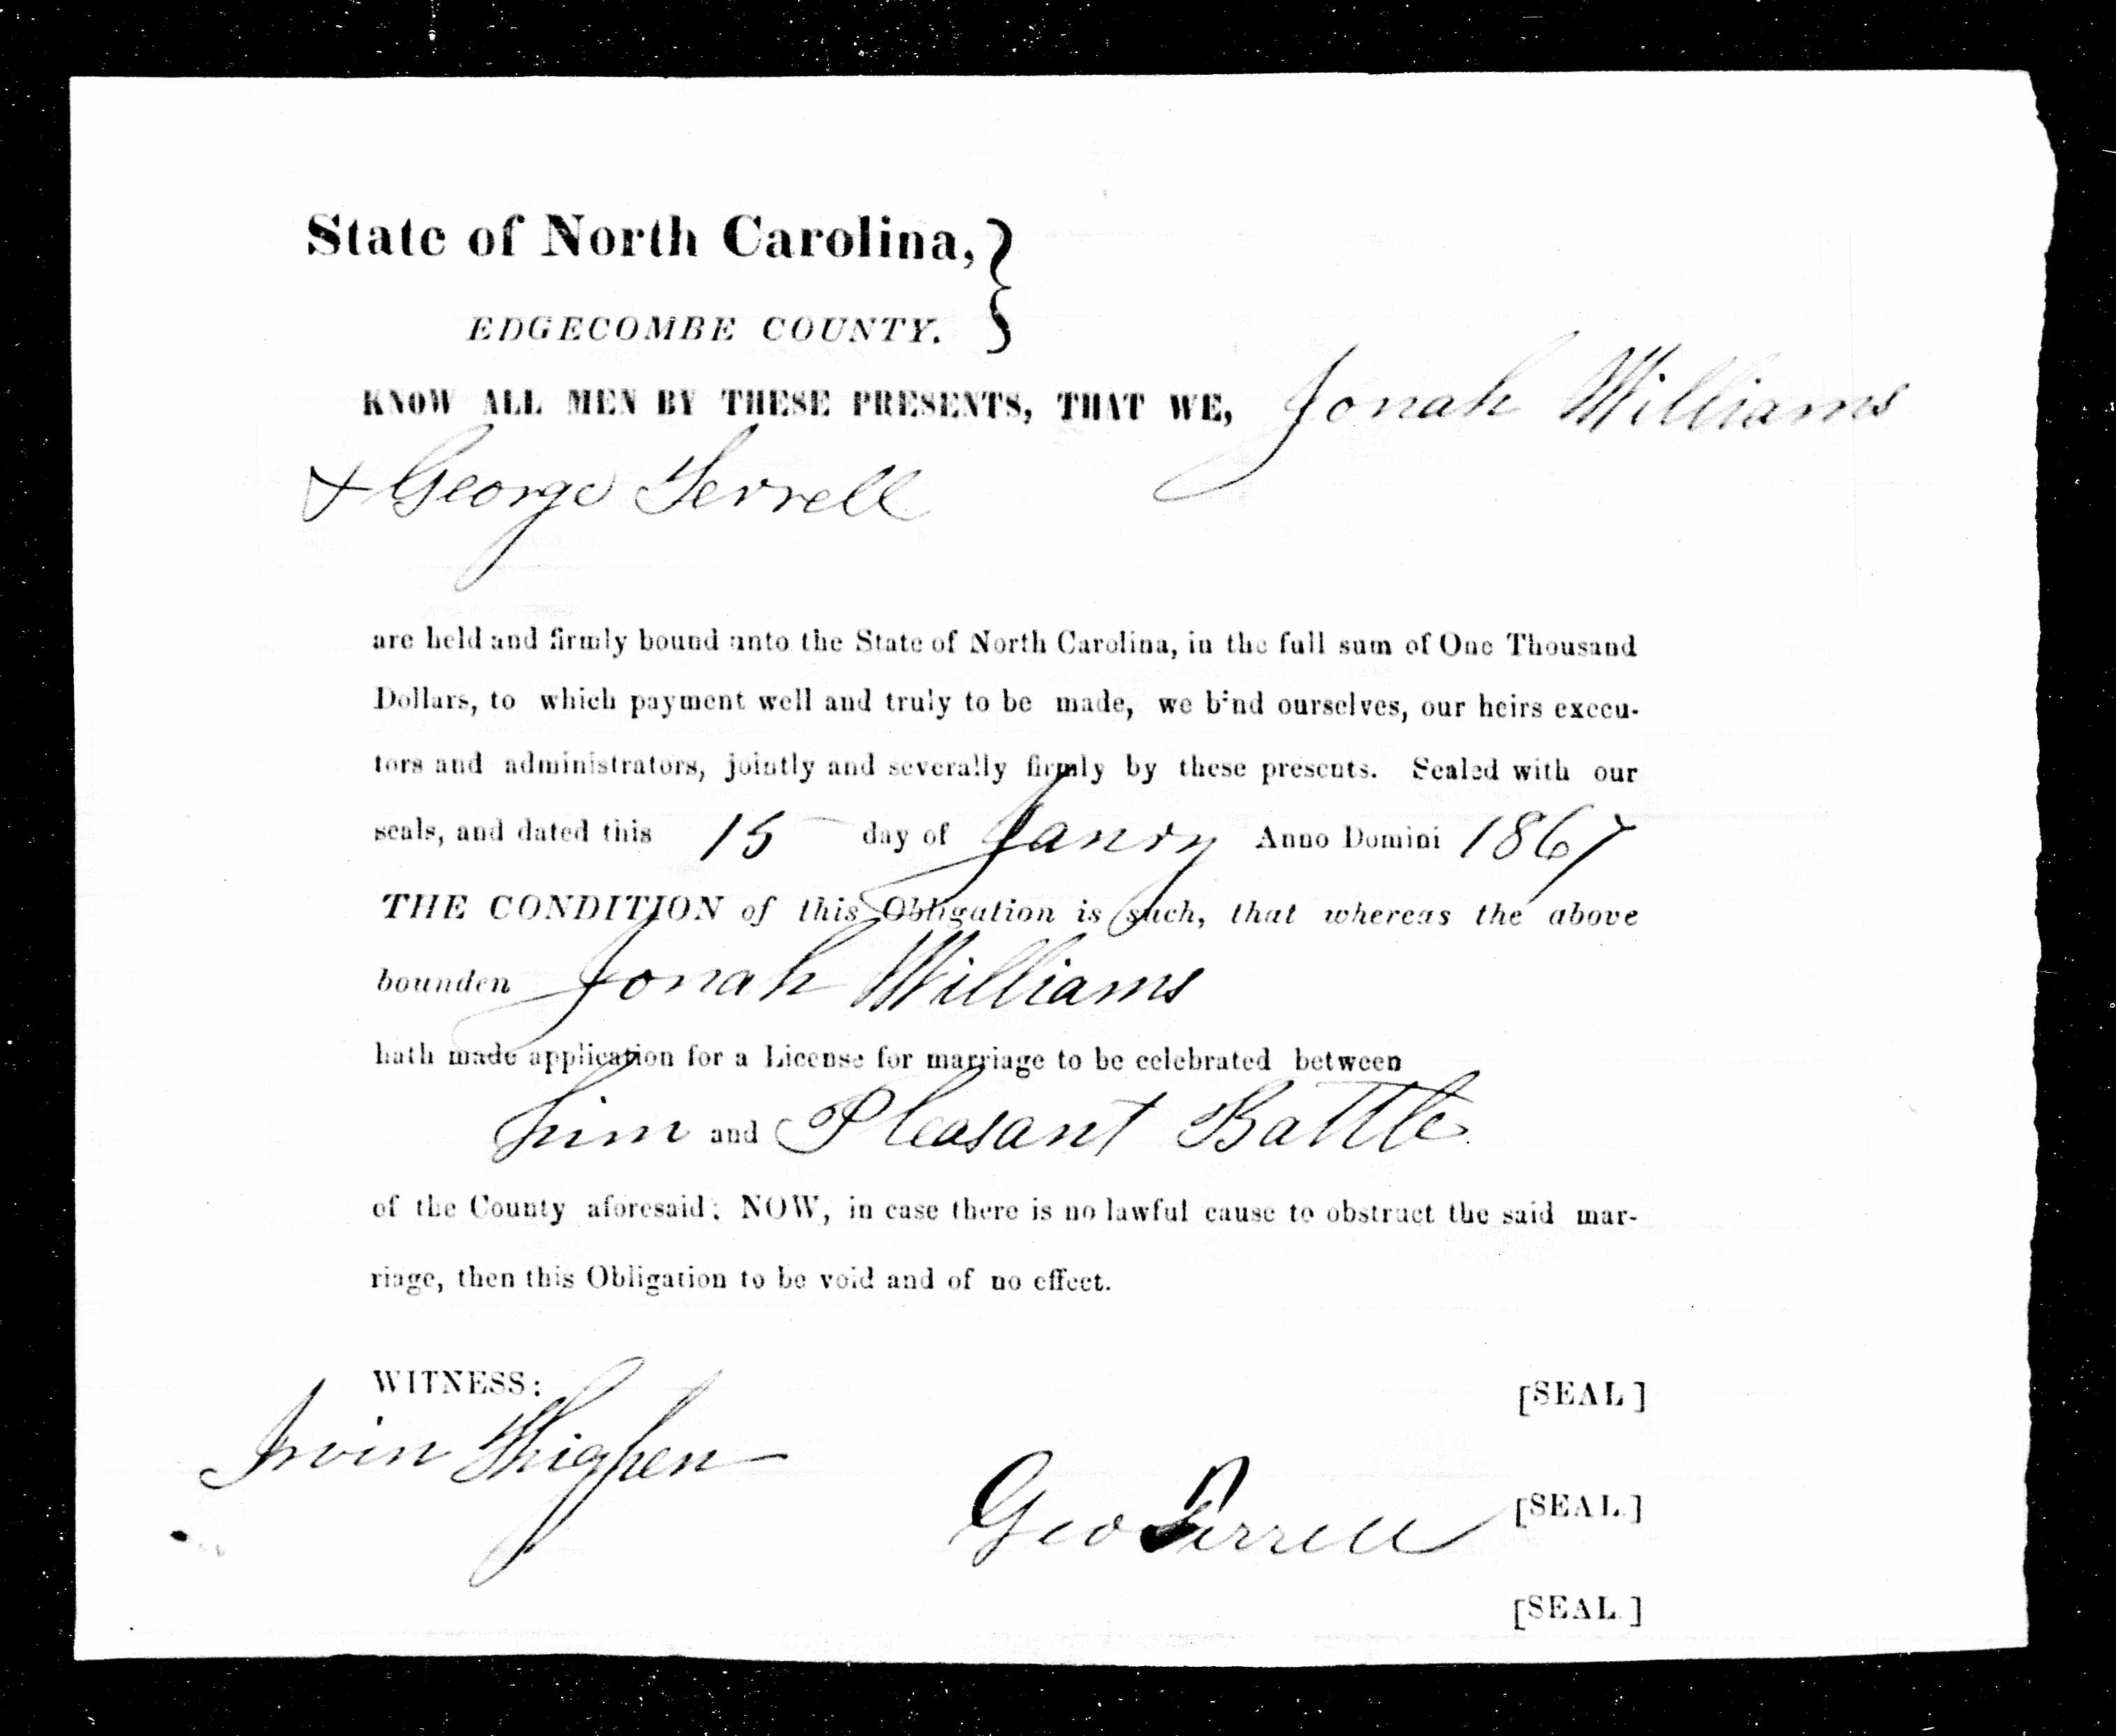 State of North Carolina,
EDGECOMBE COUNTY.
KNOW ALL MEN BY THESE PRESENTS, THAT WE, Jonah Williams
& George Terrell
are held and firmly bound unto the State of North Carolina, in the full sum of One Thousand
Dollars, to which payment well and truly to be made, we bind ourselves, our heirs execu-
tors and administrators, jointly and severally firmly by these presents. Sealed with our
seals, and dated this 15 day of Janry Anno Domini 1867
THE CONDITION of this Obligation is such, that whereas the above
bounden Jonah Williams
hath made application for a License for marriage to be celebrated between
him and Pleasant Battle
of the County aforesaid; NOW, in case there is no lawful cause to obstruct the said mar-
riage, then this Obligation to be void and of no effect.
WITNESS: [SEAL]
Irvin Thigpen
Geo Terrell [SEAL.]
[SEAL.]